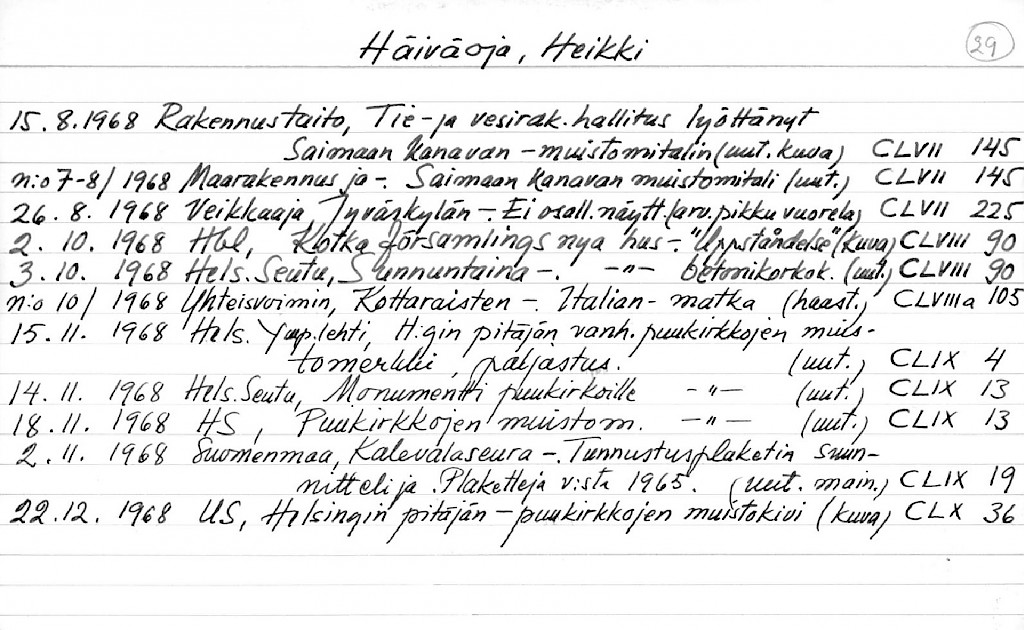 Häiväoja, Heikki 29
15.8.1968 Rakennustaito, Tie- ja vesirak. hallitus lyöttänyt
Saimaan Kanavan -muistomitalin (uut. kuva) CLVII 145
n:o 7-8/1968 Maarakennus ja -. Saimaan Kanavan muistomitali (uut.) CLVII 145
26.8.1968 Veikkaaja, Jyväskylän -. Ei osall. näytt. (arv. pikku vuorela) CLVII 225
2.10.1968 Hbl, Kotka församlings nya hus -. "Uppståndelse" (kuva) CLVIII 90
3.10.1968 Hels. Seutu, Sunnuntaina -. -"- betonikorkok. (uut.) CLVIII 90
n:o 10/1968 Yhteisvoimin, Kottaraisten -. Italian- matka (haast.) CLVIIIa 105
15.11.1968 Hels. Ymp.lehti, H:gin pitäjän vanh. puukirkkojen muis-
tomerkki, paljastus. (uut.) CLIX 4
14.11.1968 Hels. Seutu, Monumentti puukirkoille -"- (uut.) CLIX 13
18.11.1968 HS, Puukirkkojen muistom. -"- (uut.) CLIX 13
2.11.1968 Suomenmaa, Kalevalaseura -. Tunnustusplaketin suun-
nittelija. Plaketteja v:sta 1965. (uut. main.) CLIX 19
22.12.1968 US, Helsingin pitäjän -puukirkkojen muistokivi (kuva) CLX 36